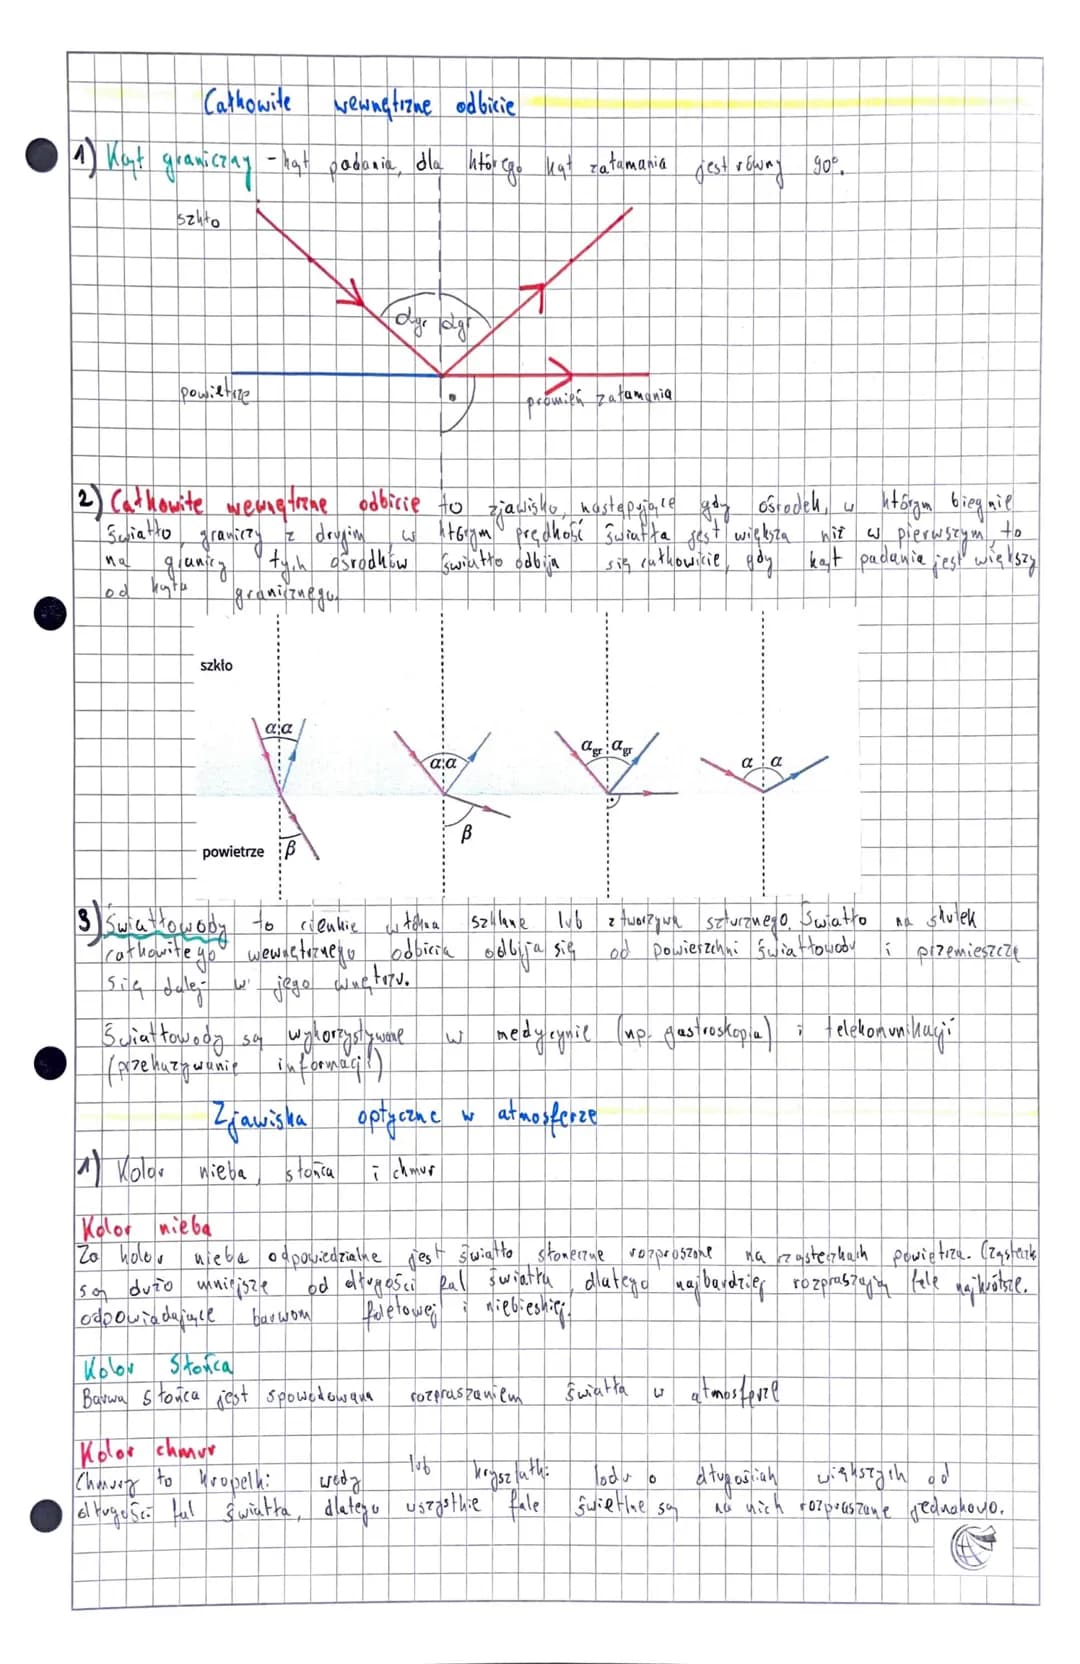 Całkowite wewnętrzne odbicie
1) Kąt graniczny - kąt padania, dla którego kąt załamania jest równy 90°.
szkło
αgr αgr
powietrze
promień załamania
2) Całkowite wewnętrzne odbicie to zjawisko, następujące gdy ośrodek, w którym biegnie
światło, graniczy z drugim, w którym prędkość światła jest większa niż w pierwszym, to
na granicy tych ośrodków światło odbija się całkowicie, gdy kąt padania jest większy
od kąta granicznego.
szkło
α α
α α
αgr αgr
α α
powietrze
β
β
3) Światłowody to cienkie włókna szklane lub z tworzywa sztucznego. Światło na skutek
całkowitego wewnętrznego odbicia odbija się od powierzchni światłowody i przemieszcza
się dalej w jego wnętrzu.
Światłowody są wykorzystywane w medycynie (np. gastroskopia) i telekomunikacji
(przekazywanie informacji)
Zjawiska optyczne w atmosferze
1) Kolor nieba, słońca i chmur
Kolor nieba
Za kolor nieba odpowiedzialne jest światło słoneczne rozproszone na cząsteczkach powietrza. Cząsteczk
są dużo mniejsze od długości fal światła, dlatego najbardziej rozpraszają fale najkrótsze.
odpowiadające barwom fioletowej i niebieskiej.
Kolor Słońca
Barwa Słońca jest spowodowana rozpraszaniem światła w atmosferze
Kolor chmur
Chmury to kropelki wody lub kryształki lodu o długościach większych od
długości fal światła, dlatego wszystkie fale świetlne są na nich rozpraszane jednakowo.